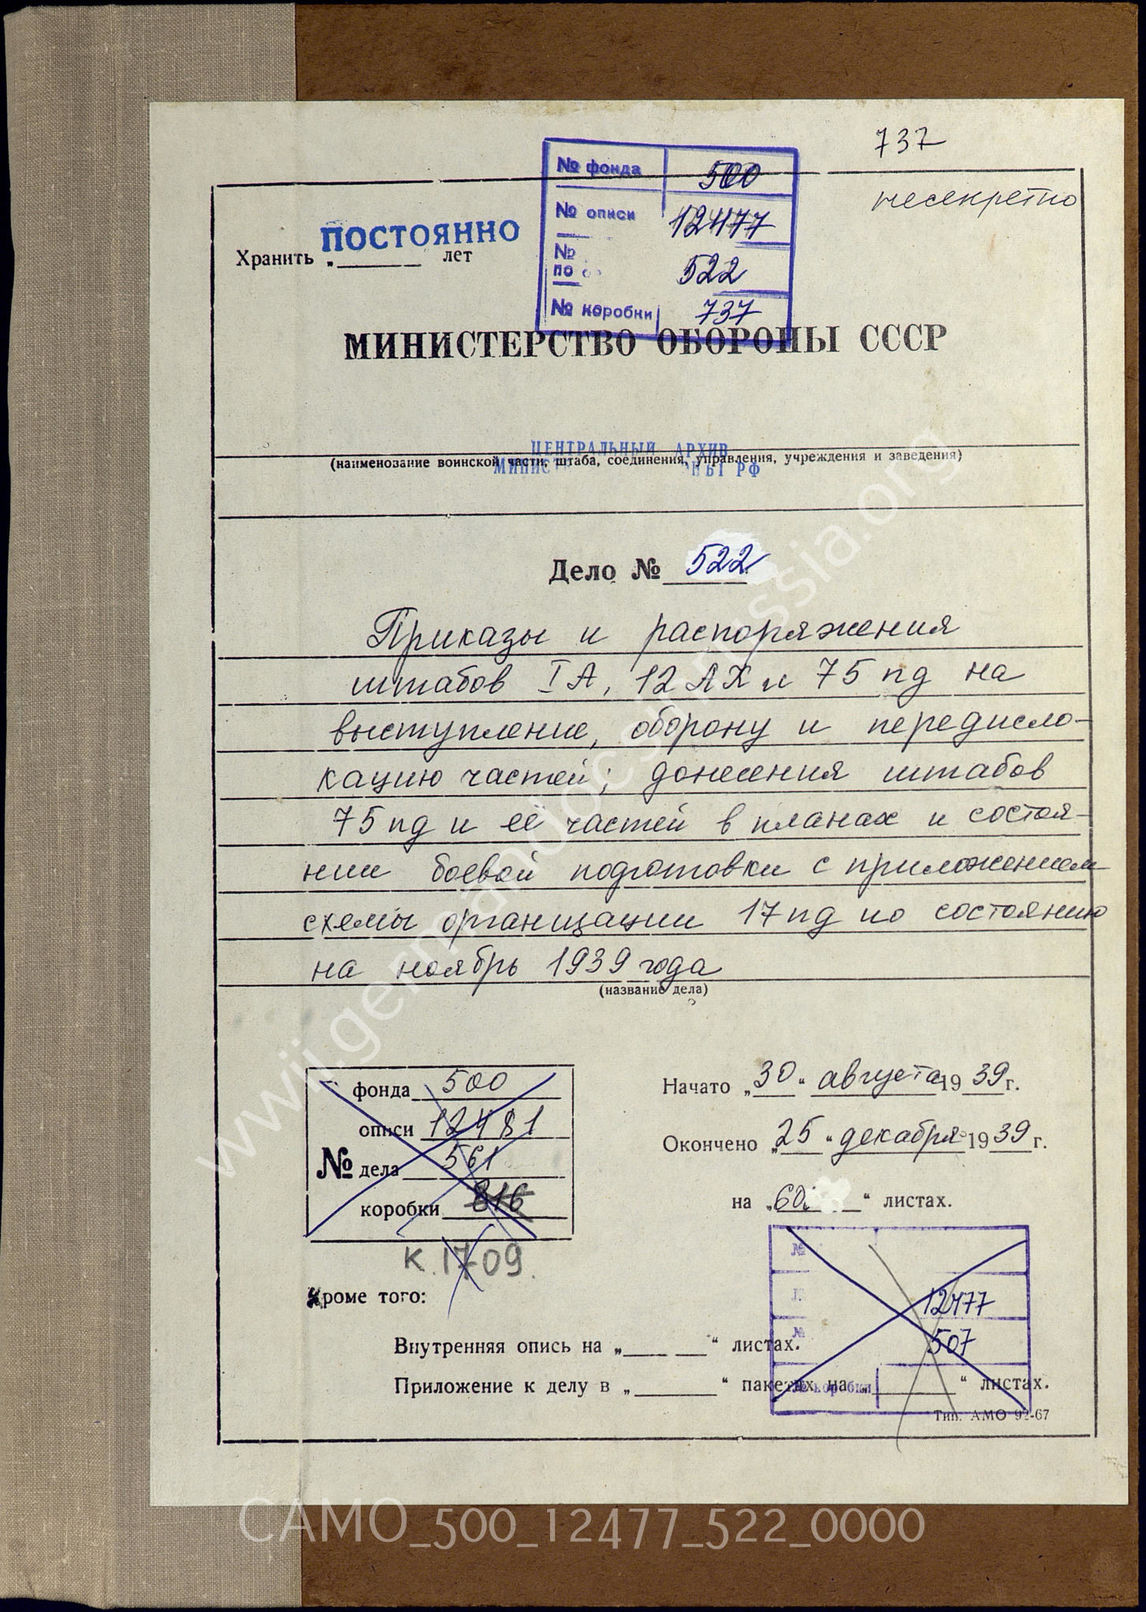 737
несекретно
№ фонда 500
№ описи 12477
№ по 522
№ коробки 737
ПОСТОЯННО
Хранить „ лет
МИНИСТЕРСТВО ОБОРОНЫ СССР
ЦЕНТРАЛЬНЫЙ АРХИВ
(наименование воинской части, штаба, соединения, управления, учреждения и заведения)
РФ
Дело № 522
Приказы и распоряжения
штабов IА, 12 АК и 75 пд на
выступление, оборону и передисло-
кацию частей; донесения штабов
75 пд и ее частей о планах и состоя-
нии боевой подготовки с приложением
схемы организации 17 пд по состоянию
на ноябрь 1939 года
(название дела)
фонда 500
описи 12481
№ дела 561
коробки 816
к. 1709.
Начато „30“ августа 1939 г.
Окончено „25“ декабря 1939 г.
на „60 “ листах.
Кроме того:
Внутренняя опись на „ “ листах.
Приложение к делу в „ “ пакетах на „ “ листах.
№
№
12477
№
507
№ коробки
Тип. АМО 92-67
www.germandocsinrussia.org
CAMO_500_12477_522_0000